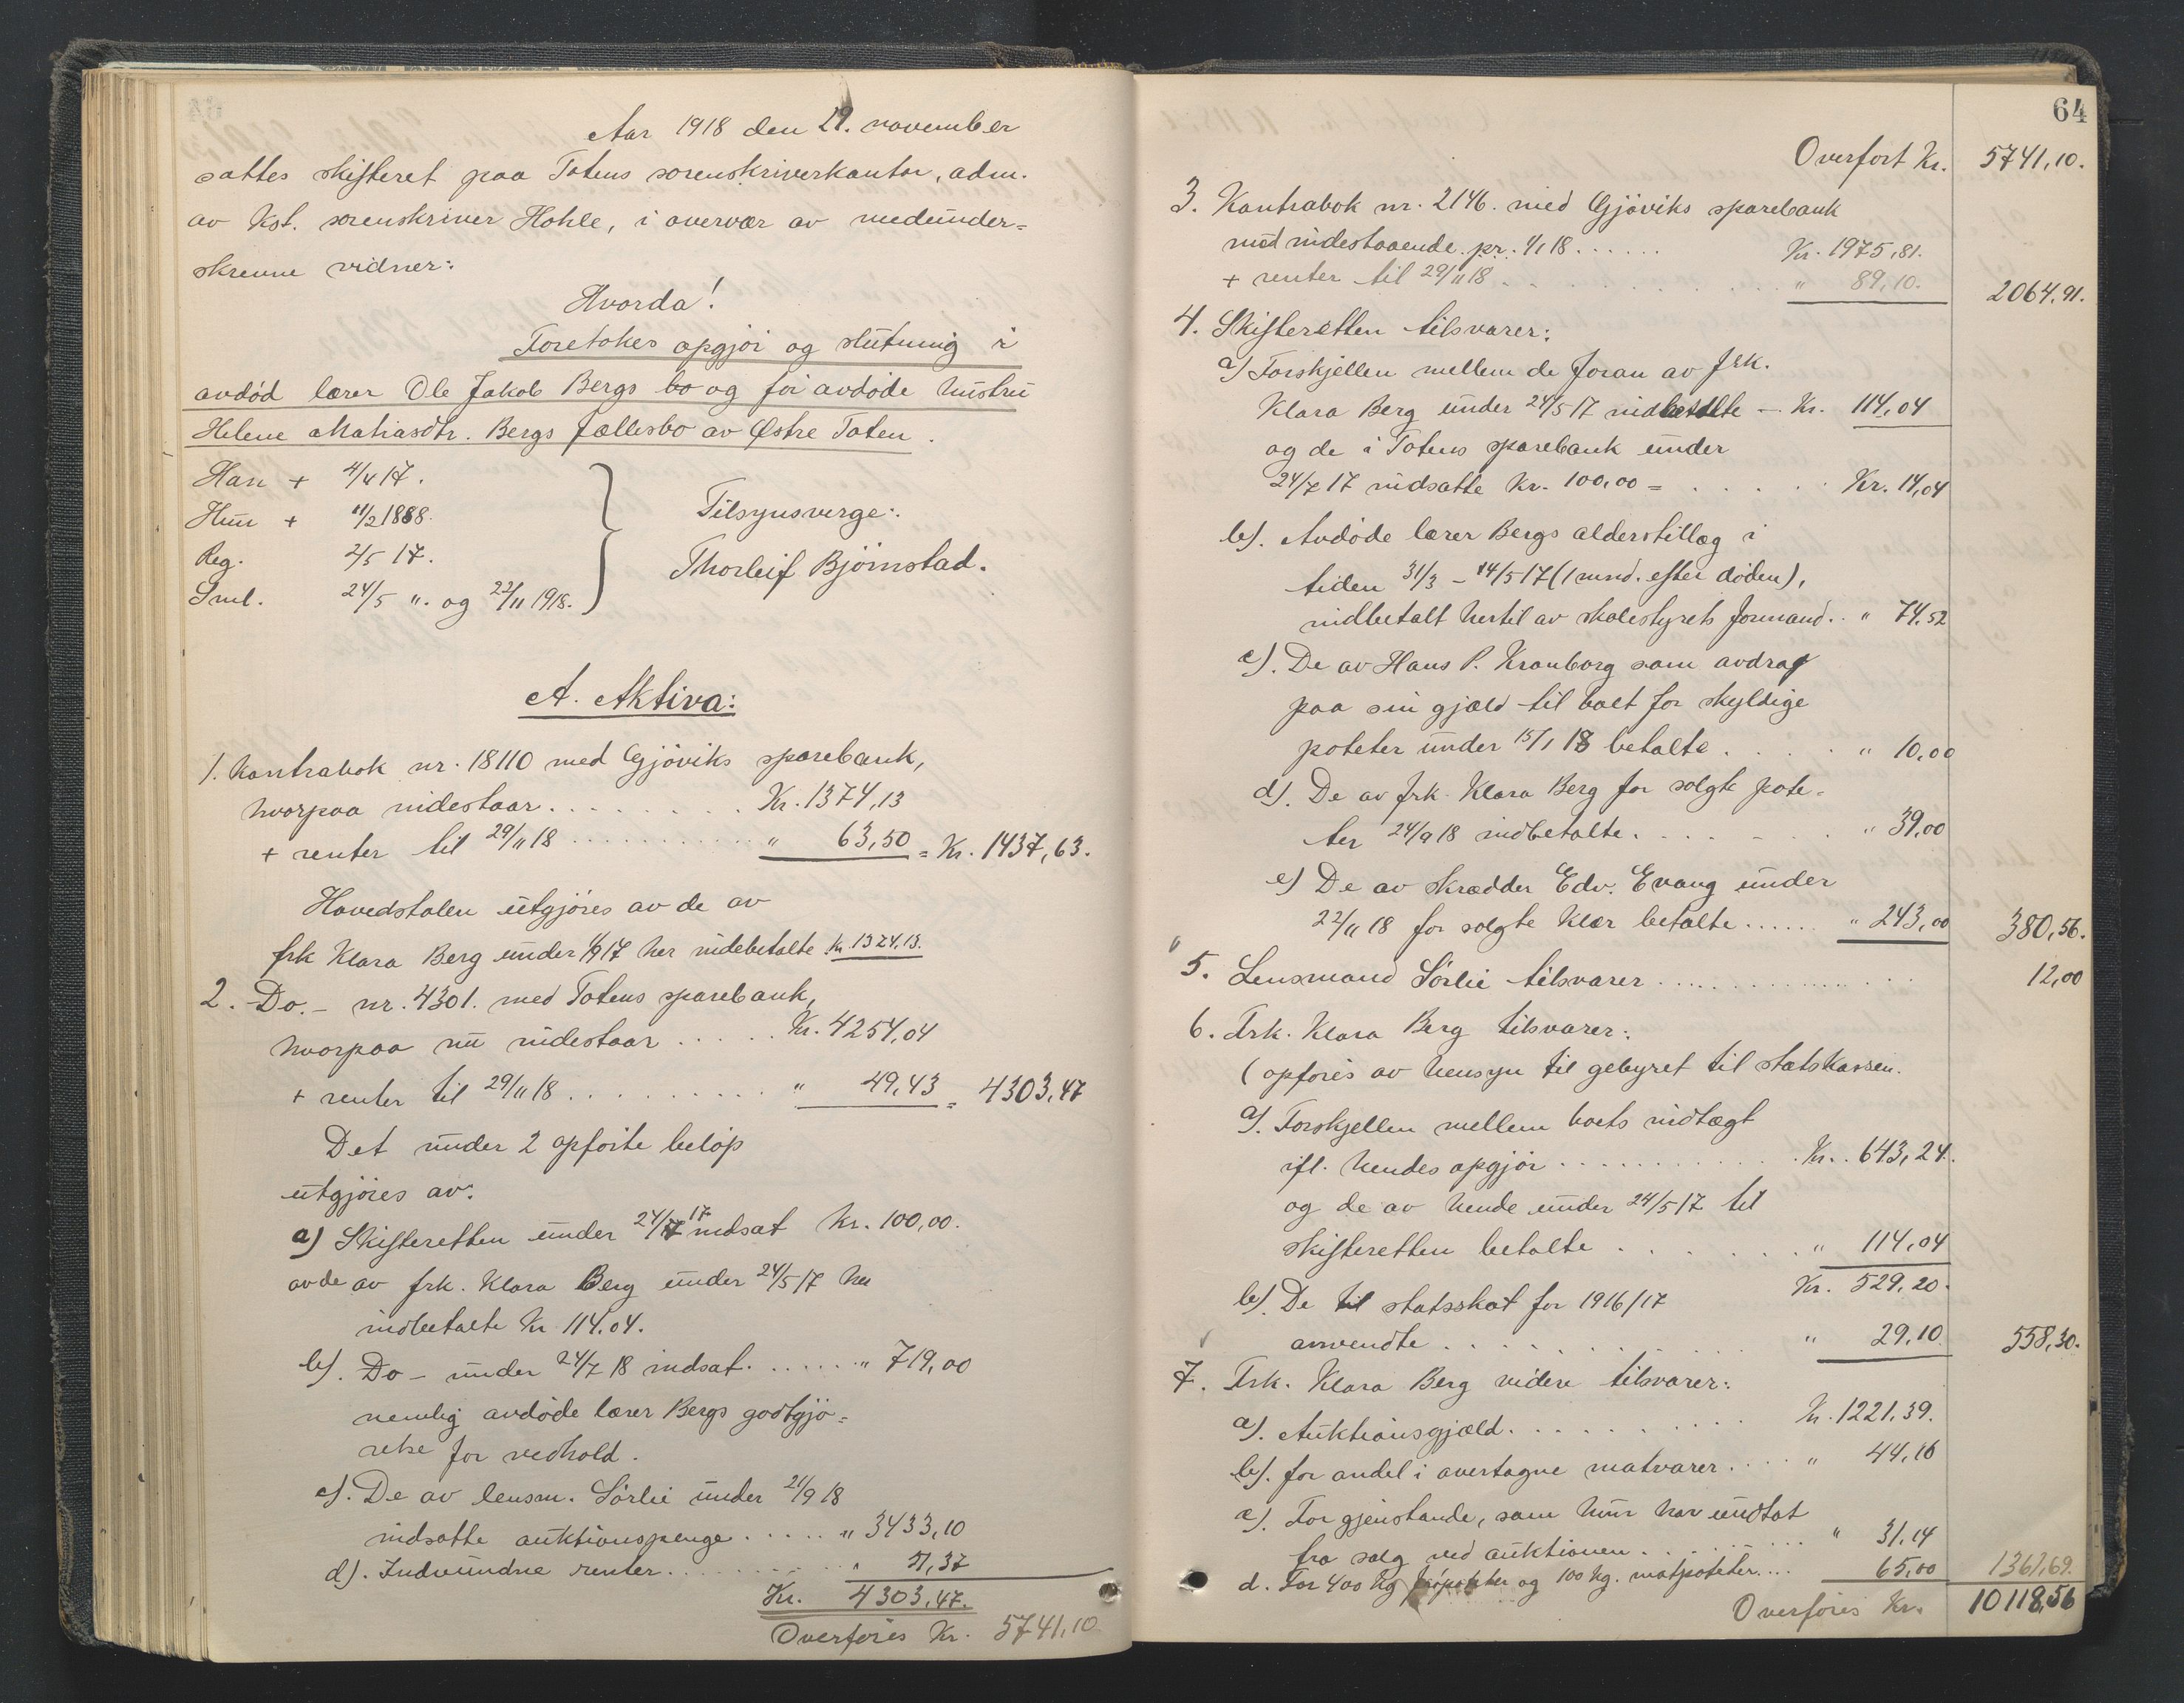 Aar 1918 den 29. november
sattes skifteret paa Totens sorenskriverkontor, adm.
av Kst. sorenskriver Hohle, i overvær av medunder-
skrevne vidner:
Hvorda!
Foretokes opgjör og slutning i
avdöd lærer Ole Jakob Bergs bo og för avdöde hustru
Helene Mathiasdtr. Bergs fællesbo av Østre Toten.
Han + 4/4 17.
Hun + 11/2 1888.
Reg. 2/5 17.
Sml. 24/5 ". og 22/11 1918.
Tilsynsverge:
Thorleif Björnstad.
A. Aktiva:
1. Kontrabok nr. 18110 med Gjöviks sparebank,
hvorpaa indestaar . . . . . . . Kr. 1374,13
+ renter til 29/11 18 . . . . . . . . . " 63,50 = Kr. 1437,63.
Hovedstolen utgjöres av de av
frk Klara Berg under 1/9 17 her indebetalte Kr. 1324,13.
2. Do. - nr. 4301. med Totens sparebank,
hvorpaa nu indestaar . . . . . Kr. 4254,04
+ renter til 29/11 18 . . . . . . . . . . " 49,43 = 4303,47
Det under 2 opförte belöp
utgjöres av:
a) Skifteretten under 24/7 17 indsat Kr. 100,00.
av de av frk. Klara Berg under 24/5 17 her
indbetalte Kr 114.04.
b). Do - under 24/7 18 indsat . . . . . . " 719,00
nemlig avdöde lærer Bergs godtgjö-
relse for vedhold.
c). De av lensm. Sörlie under 21/9 18
indsatte auktionspenge . . . . . " 3433,10
d). Indvundne renter . . . . . . . . . " 51,37
Kr. 4303,47.
Overföres Kr. 5741,10
64
Overfört Kr. 5741,10.
3. Kontrabok nr. 2146. med Gjöviks sparebank
med indestaaende pr. 1/1 18 . . . . . . Kr. 1975,81.
+ renter til 29/11 18 . . . . . . . . . . " 89,10. 2064,91.
4. Skifteretten tilsvarer:
a) Forskjellen mellem de foran av frk.
Klara Berg under 24/5 17 indbetalte - Kr. 114,04
og de i Totens sparebank under
24/7 17 indsatte Kr. 100,00 = . . . . . Kr. 14,04
b). Avdöde lærer Bergs alderstillæg i
tiden 31/3 - 14/5 17 (1 mnd. efter döden),
indbetalt hertil av skolestyrets formand . . " 74,52
c). De av Hans P. Kronborg som avdrag
paa sin gjæld til boet for skyldige
poteter under 15/1 18 betalte . . . . . " 10,00
d). De av frk. Klara Berg for solgte pote-
ter 24/9 18 indbetalte . . . . . . . " 39,00
e) De av skrædder Edv. Evang under
22/11 18 for solgte klær betalte . . . . . . " 243,00 380,56.
5. Lensmand Sörlie tilsvarer . . . . . . . . . . . . 12,00
6. Frk. Klara Berg tilsvarer:
(opföres av hensyn til gebyret til statskassen.
a). Forskjellen mellem boets indtægt
ifl. hendes opgjör . . . . . . . . . . . Kr. 643,24.
og de av hende under 24/5 17 til
skifteretten betalte . . . . . . . " 114,04
Kr. 529,20.
b). De til statsskat for 1916/17
anvendte . . . . . . . . . . . " 29,10 558,30.
7. Frk. Klara Berg videre tilsvarer:
a). Auktionsgjæld . . . . . . . . . Kr. 1221,39.
b). for andel i overtagne matvarer . . . . " 44,16
c). For gjenstande, som hun har undtat
fra salg ved auktionen . . . . . . . . " 31,14
d. For 400 kg og 100 kg. matpoteter . . . . 65,00 1361,69.
Overföres Kr. 10118,56